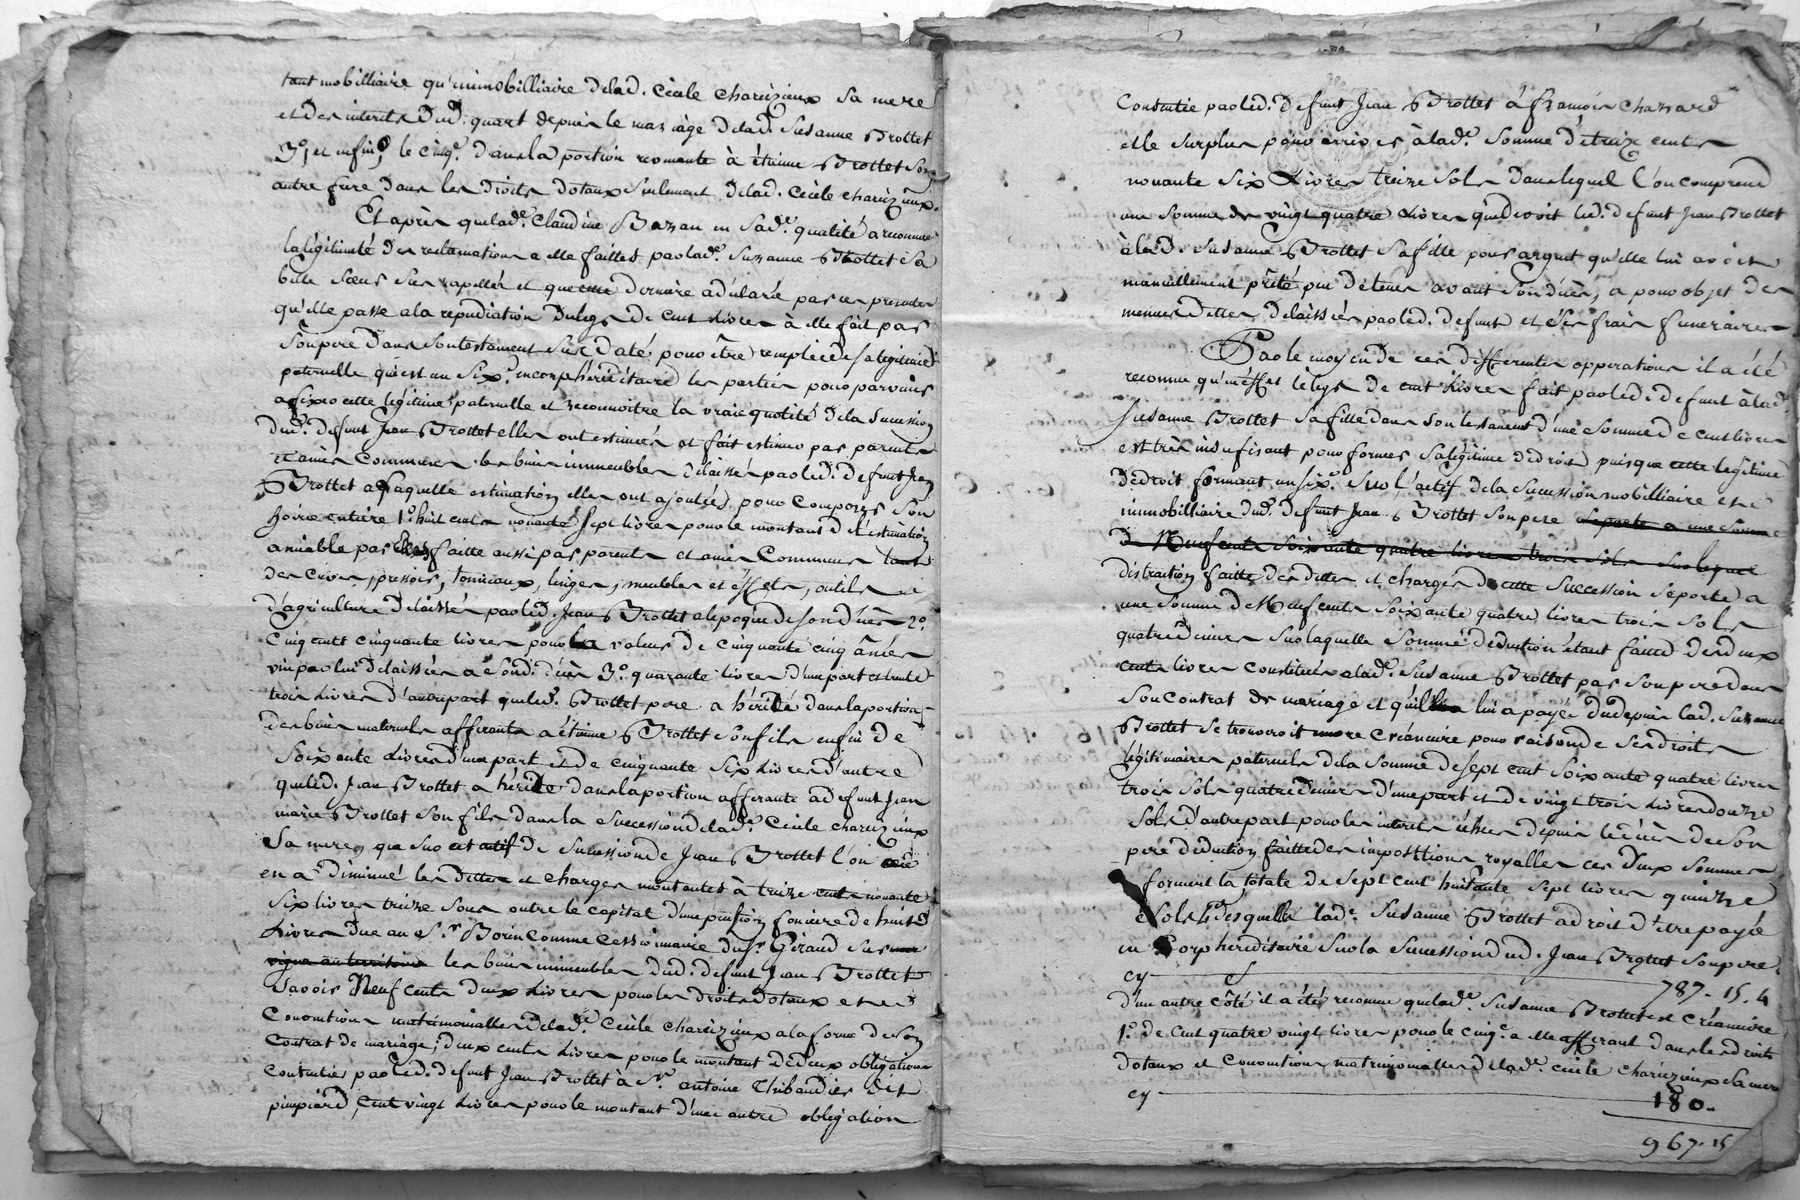 tant mobilliaire qu'immobilliaire delad. Cécile Charézieux sa mere
et des interets dud. quart depuis le mariage delad.e Susanne Brottet
3.o et enfin, le cinq.e dans la portion revenante à étienne Brottet son
autre frere dans les droits dotaux seulement delad. Cécile Charézieux.
Et après quelad.e Claudine Bazan en sad.e qualité a reconnu
la légitimité des reclamations a elle faittes par lad.e Suzanne Brottet sa
belle sœur sus rapellés et que cette derniere a déclaré par ces presentes
qu'elle passe a la repudiation du legs de cent livres à elle fait par
son pere dans son testament sus daté pour être remplie de sa légitime
paternelle qui est un six.e en corps héréditaire les parties pour parvenir
a fixer cette légitime paternelle et reconnoitre la vraie quotité de la succession
dud. defunt Jean Brottet elles ont estimés et fait estimer par parents
et amis communs les biens immeubles délaissés par led. defunt Jean
Brottet a laquelle estimation elles ont ajoutés pour composer son
hoirie entière 1.o huit cents nonante sept livres pour le montant de l'estimation
amiable par elles faitte aussi par parents et amis communs tant
des cuves, pressoir, tonneaux, linges, meubles et effets, outils
d'agriculture délaissés par led. Jean Brottet a l'epoque de son décès 2.o
cinq cents cinquante livres pour la valeur de cinquante cinq ânées
vin par lui délaissées a sond. décès 3.o quarante livres d'une part et trente
trois livres d'autre part que led. Brottet pere a hérité dans la portion
des biens maternels afférants a étienne Brottet son fils enfin de
soixante livres d'une part et de cinquante six livres d'autre
que led. Jean Brottet a hérité dans la portion afferante a defunt Jean
marie Brottet son fils dans la succession delad.e Cécile Charézieux
sa mere, que sur cet actif de succession de Jean Brottet l'on
en a diminué les dettes et charges montantes à treize cents nonante
six livres treize sous outre le capital d'une pension fonciere de huit
livres due au S.r Borin comme cessionnaire du S.r Giraud sur une
vigne au territoire les biens immeubles dud. defunt Jean Brottet
savoir Neuf cents deux livres pour les droits dotaux et
conventions matrimonialles delad.e Cécile Charézieux a la forme de son
contrat de mariage; deux cents livres pour le montant de deux obligations
consenties par led. defunt Jean Brottet à S.r antoine Thibaudier dit
pimpiard, cent vingt livres pour le montant d'une autre obligation
Consentie par led. defunt Jean Brottet à françois Chazard
et le surplus pour arriver à lad.e somme de treize cents
nonante six livres treize sols dans lequel l'on comprend
une somme de vingt quatre livres que devoit led. defunt Jean Brottet
à lad. Susanne Brottet sa fille pour argent qu'elle lui avoit
manuellement prêté peu de tems avant son décès, a pour objet des
menues dettes délaissées par led. defunt et ses frais funeraires
Par le moyen de ces differentes opperations il a été
reconnu qu'en effet le legs de cent livres fait par led. defunt à lad.
Susanne Brottet sa fille dans son testament d'une somme de cent livres
est très insufisant pour former sa légitime de droit, puisque cette legitime
de droit formant un six.e sur l'actif de la succession mobilliaire et
immobilliaire dud. defunt Jean Brottet son pere se porte a une somme
de Neuf cents soixante quatre livres trois sols sur laquelle
distraction faitte des dettes et charges de cette succession se porte a
une somme de Neuf cents soixante quatre livres trois sols
quatre deniers sur laquelle somme déduction étant faitte des deux
cents livres constitués a lad.e Susanne Brottet par son pere dans
son contrat de mariage et qu'il lui a payé du depuis lad. Suzanne
Brottet se trouveroit encore créanciere pour raison de ses droits
légitimaires paternels de la somme de sept cent soixante quatre livres
trois sols quatre deniers d'une part et de vingt trois livres douze
sols d'autre part pour les interets échus depuis le décès de son
pere déduction faitte des impositions royalles ces deux sommes
forment la totale de sept cent huitante sept livres quinze
sols 4.d desquelles lad.e Susanne Brottet a droit d'etre payée
en Corp hereditaire sur la succession dud. Jean Brottet son pere.
cy 787. 15. 4
d'un autre côté il a été reconnu que lad.e Susanne Brottet est Créanciere
1.o de cent quatre vingt livres pour le cinq.e a elle afferant dans les droits
dotaux et conventions matrimonialles delad.e Cécile Charézieux sa mere
cy 180.
967. 15